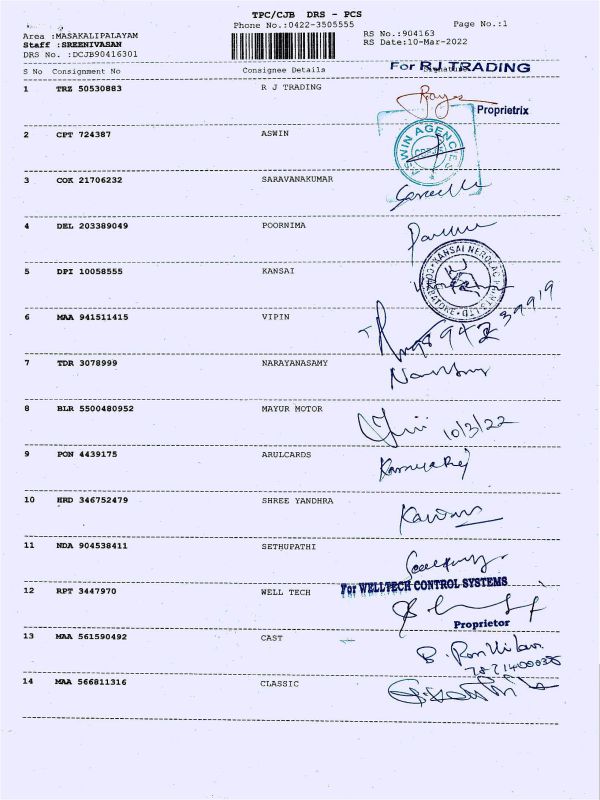 TPC/CJB DRS - PCS
Phone No.:0422-3505555 Page No.:1
Area :MASAKALIPALAYAM RS No.:904163
Staff :SREENIVASAN RS Date:10-Mar-2022
DRS No. :DCJB90416301
S No Consignment No Consignee Details Signature
For R.J. TRADING
1 TRZ 50530883 R J TRADING
Proprietrix
2 CPT 724387 ASWIN
ASWIN AGENCIES
3 COK 21706232 SARAVANAKUMAR
4 DEL 203389049 POORNIMA
5 DPI 10058555 KANSAI
KANSAI NEROLAC PAINTS LTD
COIMBATORE
6 MAA 941511415 VIPIN
7 TDR 3078999 NARAYANASAMY
8 BLR 5500480952 MAYUR MOTOR
10/3/22
9 PON 4439175 ARULCARDS
10 HRD 346752479 SHREE YANDHRA
11 NDA 904538411 SETHUPATHI
For WELLTECH CONTROL SYSTEMS
12 RPT 3447970 WELL TECH
Proprietor
13 MAA 561590492 CAST
14 MAA 566811316 CLASSIC